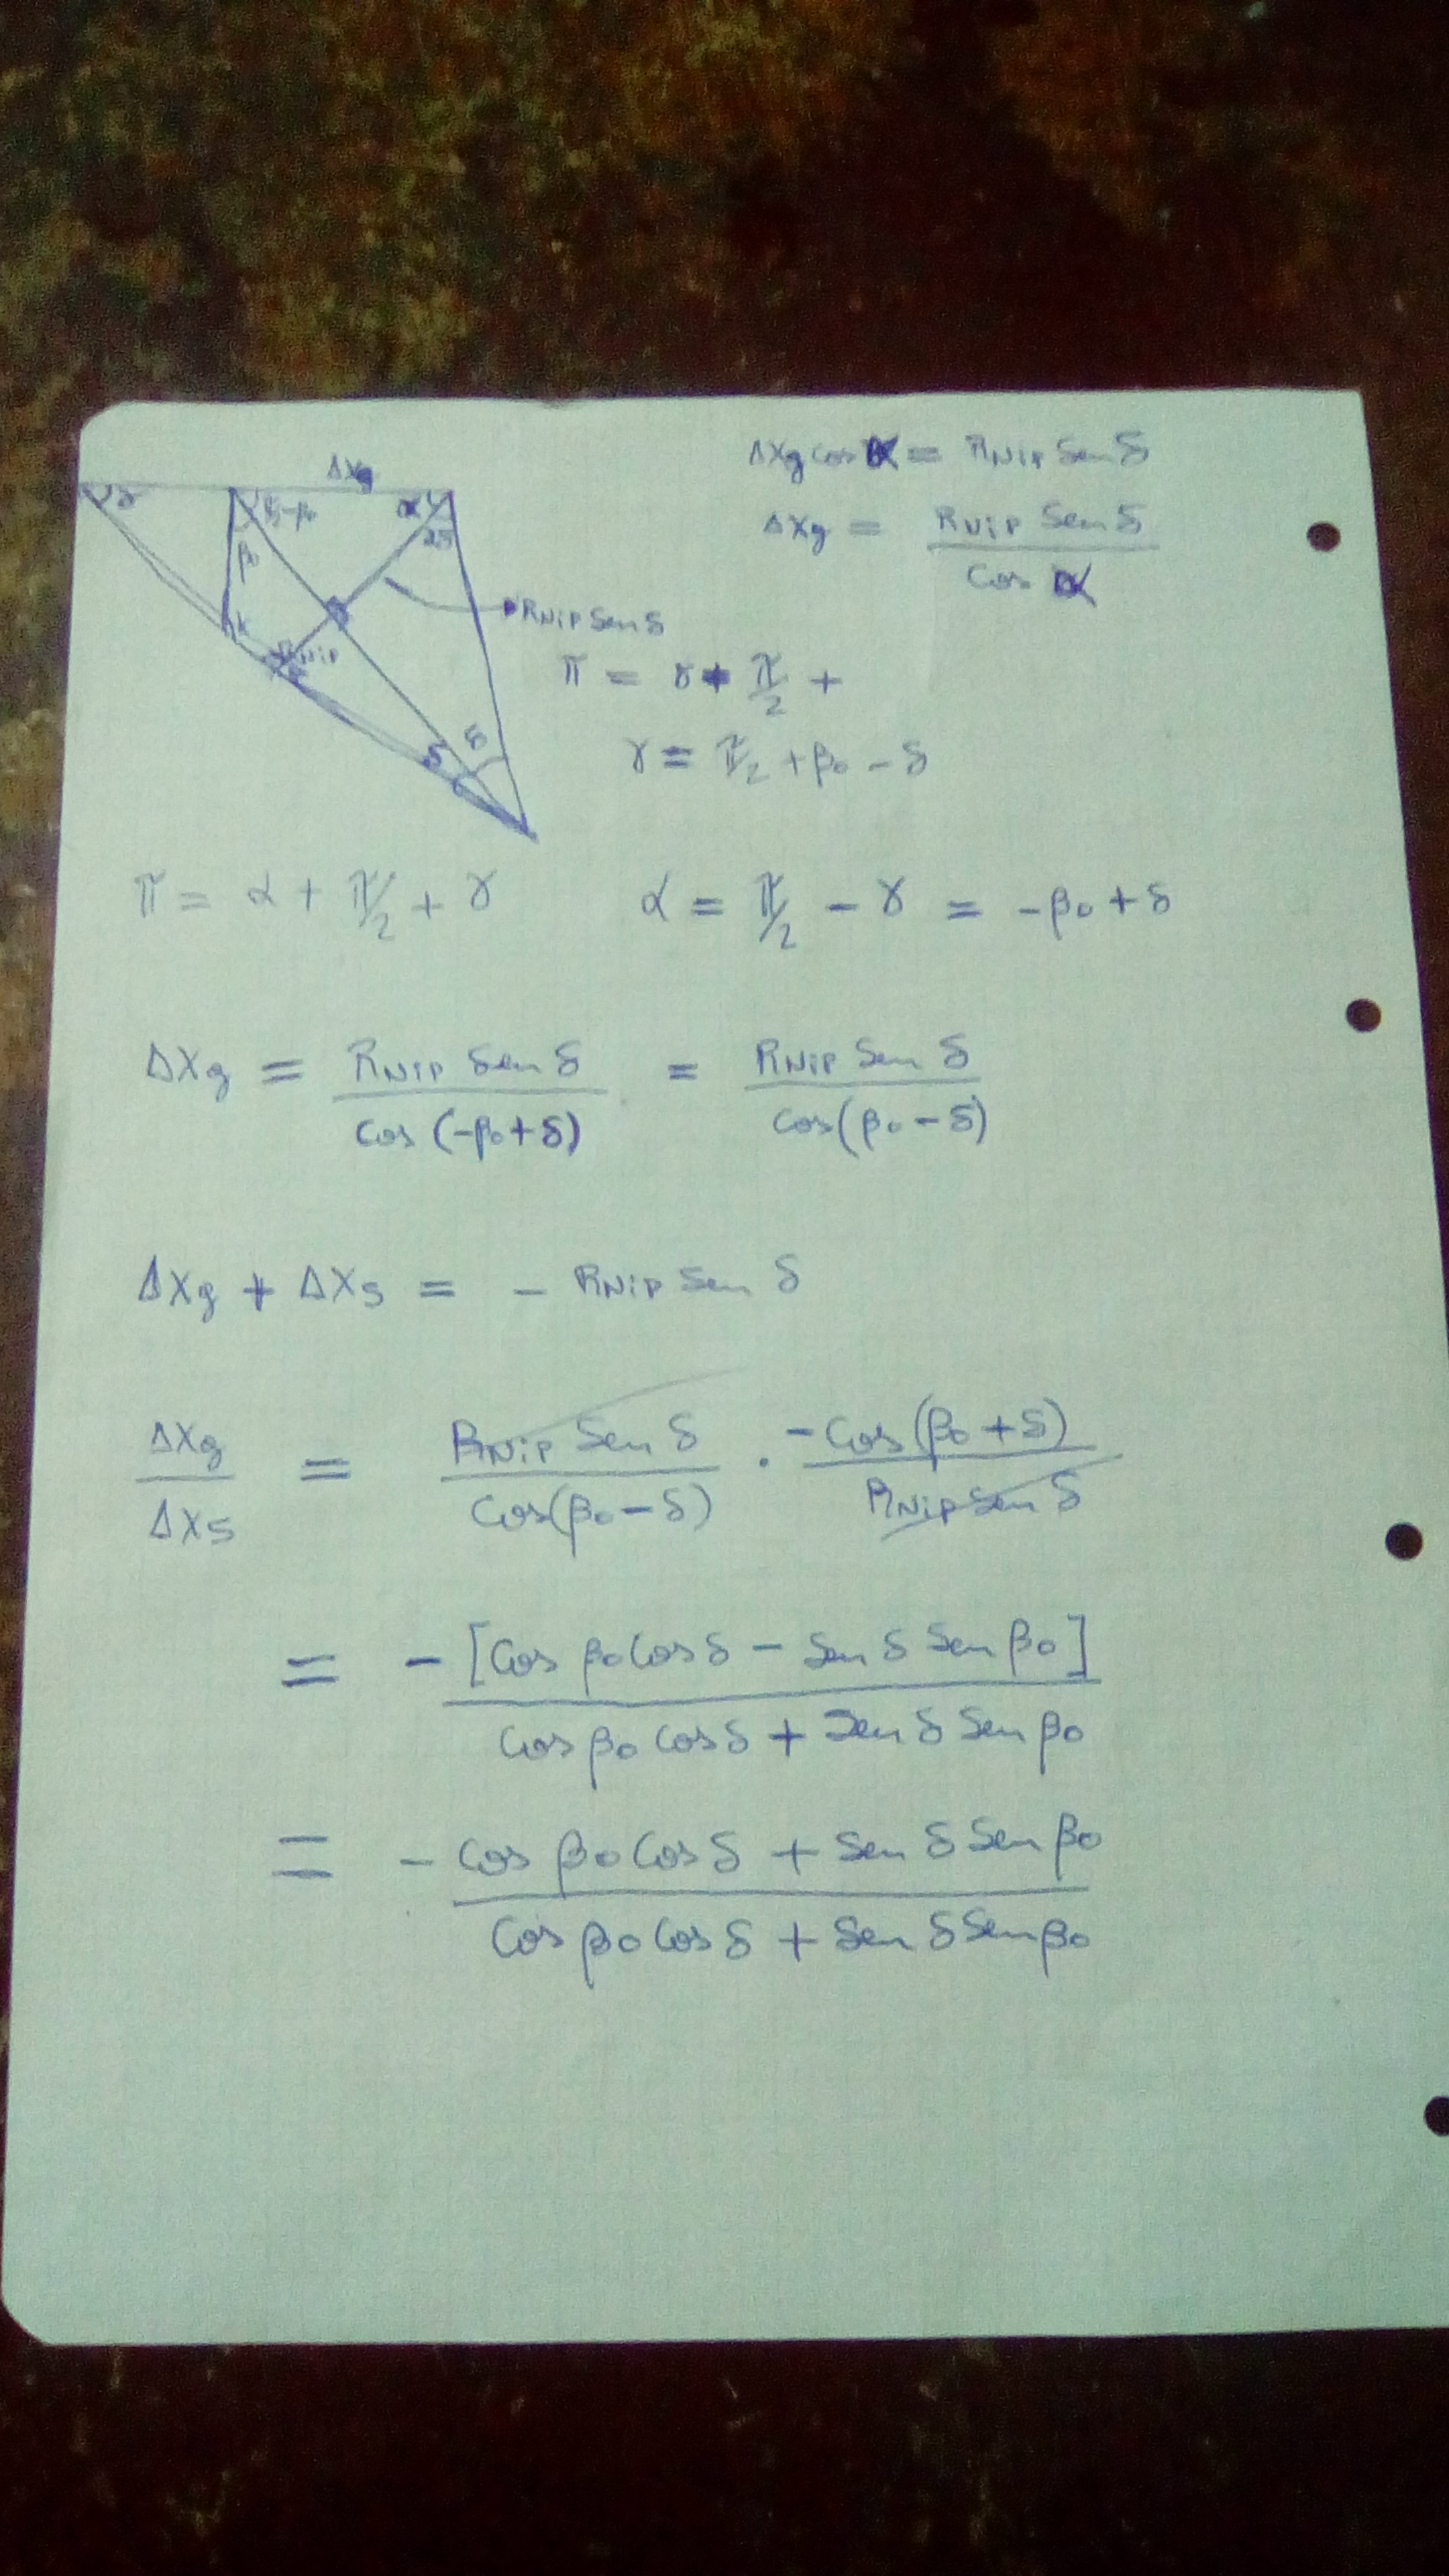 ΔXg
ΔXg cos α = RNIP Sen δ
γ
π/2-β0
α
2δ
ΔXg = RNIP Sen δ / Cos α
β0
RNIP Sen δ
RNIP
π = γ + π/2 +
δ δ
γ = π/2 + β0 - δ
π = α + π/2 + γ α = π/2 - γ = -β0 + δ
ΔXg = RNIP Sen δ / Cos (-β0+δ) = RNIP Sen δ / Cos(β0-δ)
ΔXg + ΔXs = - RNIP Sen δ
ΔXg / ΔXs = RNIP Sen δ / Cos(β0-δ) · -Cos(β0+δ) / RNIP Sen δ
= -[Cos β0 Cos δ - Sen δ Sen β0] / Cos β0 Cos δ + Sen δ Sen β0
= - Cos β0 Cos δ + Sen δ Sen β0 / Cos β0 Cos δ + Sen δ Sen β0